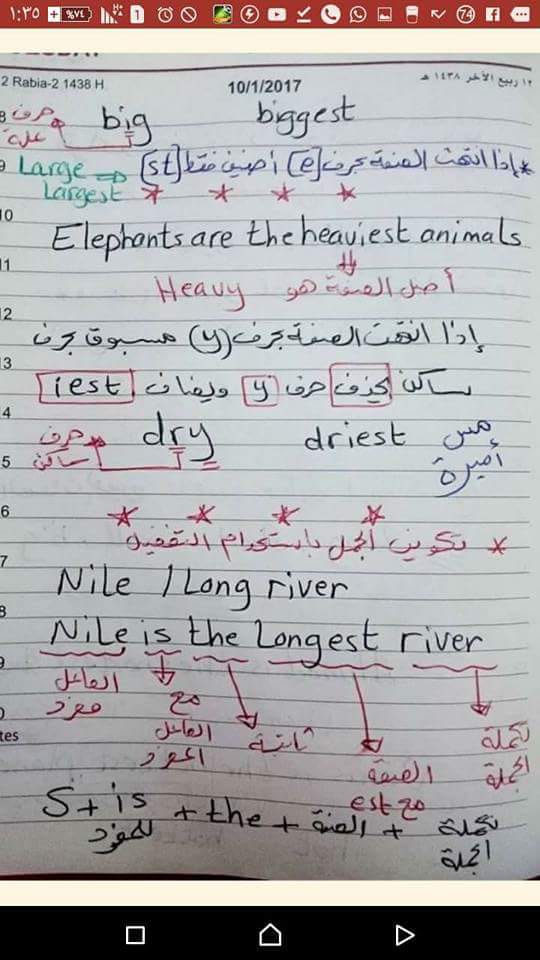 ١:٣٥
%٧٤
74
2 Rabia-2 1438 H
10/1/2017
١٢ ربيع الآخر ١٤٣٨ هـ
8
حرف علة
big
biggest
9
Large ⇒ [st] أضيف فقط [e] إذا انتهت الصفة بحرف *
Largest
10
Elephants are the heaviest animals
11
Heavy أصل الصفة هو
12
إذا انتهت الصفة بحرف (y) مسبوق بحرف
13
ساكن يحذف حرف y ويضاف iest
14
حرف ساكن
dry
driest
مس أميرة
15
16
* تكوين الجمل باستخدام التفضيل
17
Nile / Long river
18
Nile is the Longest river
الفاعل مفرد
مع الفاعل المفرد
ثابتة
الصفة مع est
تكملة الجملة
tes
S + is + the + الصفة + تكملة الجملة
للمفرد